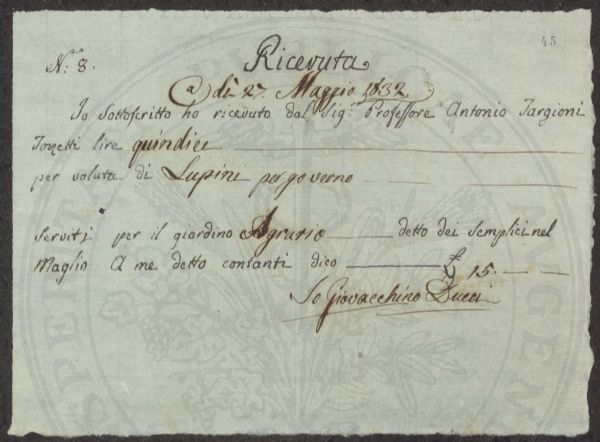 45
N.º 8.
Ricevuta
A dì 27. Maggio 1832
Io Sottoscritto ho ricevuto dal Sig.r Professore Antonio Targioni
Tozzetti lire quindici
per valuta di Lupini per governo
serviti per il giardino Agrario detto dei Semplici nel
Maglio A me detto contanti dico £ 15.
Io Giovacchino Ducci